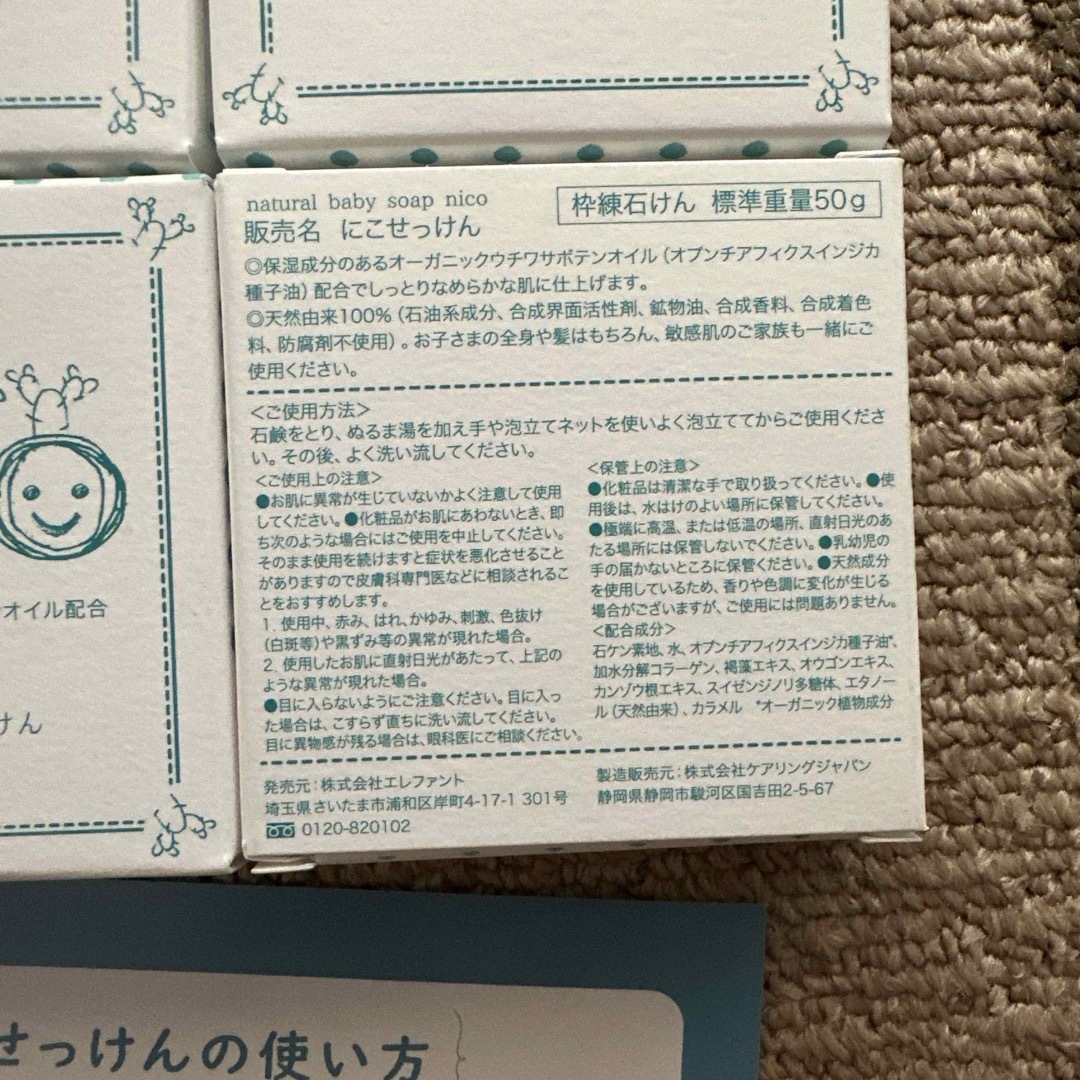 natural baby soap nico
販売名 にこせっけん
枠練石けん 標準重量50g
◎保湿成分のあるオーガニックウチワサボテンオイル（オプンチアフィクスインジカ
種子油）配合でしっとりなめらかな肌に仕上げます。
◎天然由来100%（石油系成分、合成界面活性剤、鉱物油、合成香料、合成着色
料、防腐剤不使用）。お子さまの全身や髪はもちろん、敏感肌のご家族も一緒にご
使用ください。
＜ご使用方法＞
石鹸をとり、ぬるま湯を加え手や泡立てネットを使いよく泡立ててからご使用くださ
い。その後、よく洗い流してください。
＜ご使用上の注意＞
●お肌に異常が生じていないかよく注意して使用
してください。●化粧品がお肌にあわないとき、即
ち次のような場合にはご使用を中止してください。
そのまま使用を続けますと症状を悪化させること
がありますので皮膚科専門医などに相談されるこ
とをおすすめします。
1. 使用中、赤み、はれ、かゆみ、刺激、色抜け
（白斑等）や黒ずみ等の異常が現れた場合。
2. 使用したお肌に直射日光があたって、上記の
ような異常が現れた場合。
●目に入らないようにご注意ください。目に入っ
た場合は、こすらず直ちに洗い流してください。
目に異物感が残る場合は、眼科医にご相談ください。
＜保管上の注意＞
●化粧品は清潔な手で取り扱ってください。●使
用後は、水はけのよい場所に保管してください。
●極端に高温、または低温の場所、直射日光のあ
たる場所には保管しないでください。●乳幼児の
手の届かないところに保管ください。●天然成分
を使用しているため、香りや色調に変化が生じる
場合がございますが、ご使用には問題ありません。
＜配合成分＞
石ケン素地、水、オプンチアフィクスインジカ種子油*、
加水分解コラーゲン、褐藻エキス、オウゴンエキス、
カンゾウ根エキス、スイゼンジノリ多糖体、エタノー
ル（天然由来）、カラメル *オーガニック植物成分
発売元：株式会社エレファント
埼玉県さいたま市浦和区岸町4-17-1 301号
0120-820102
製造販売元：株式会社ケアリングジャパン
静岡県静岡市駿河区国吉田2-5-67
オイル配合
けん
せっけんの使い方